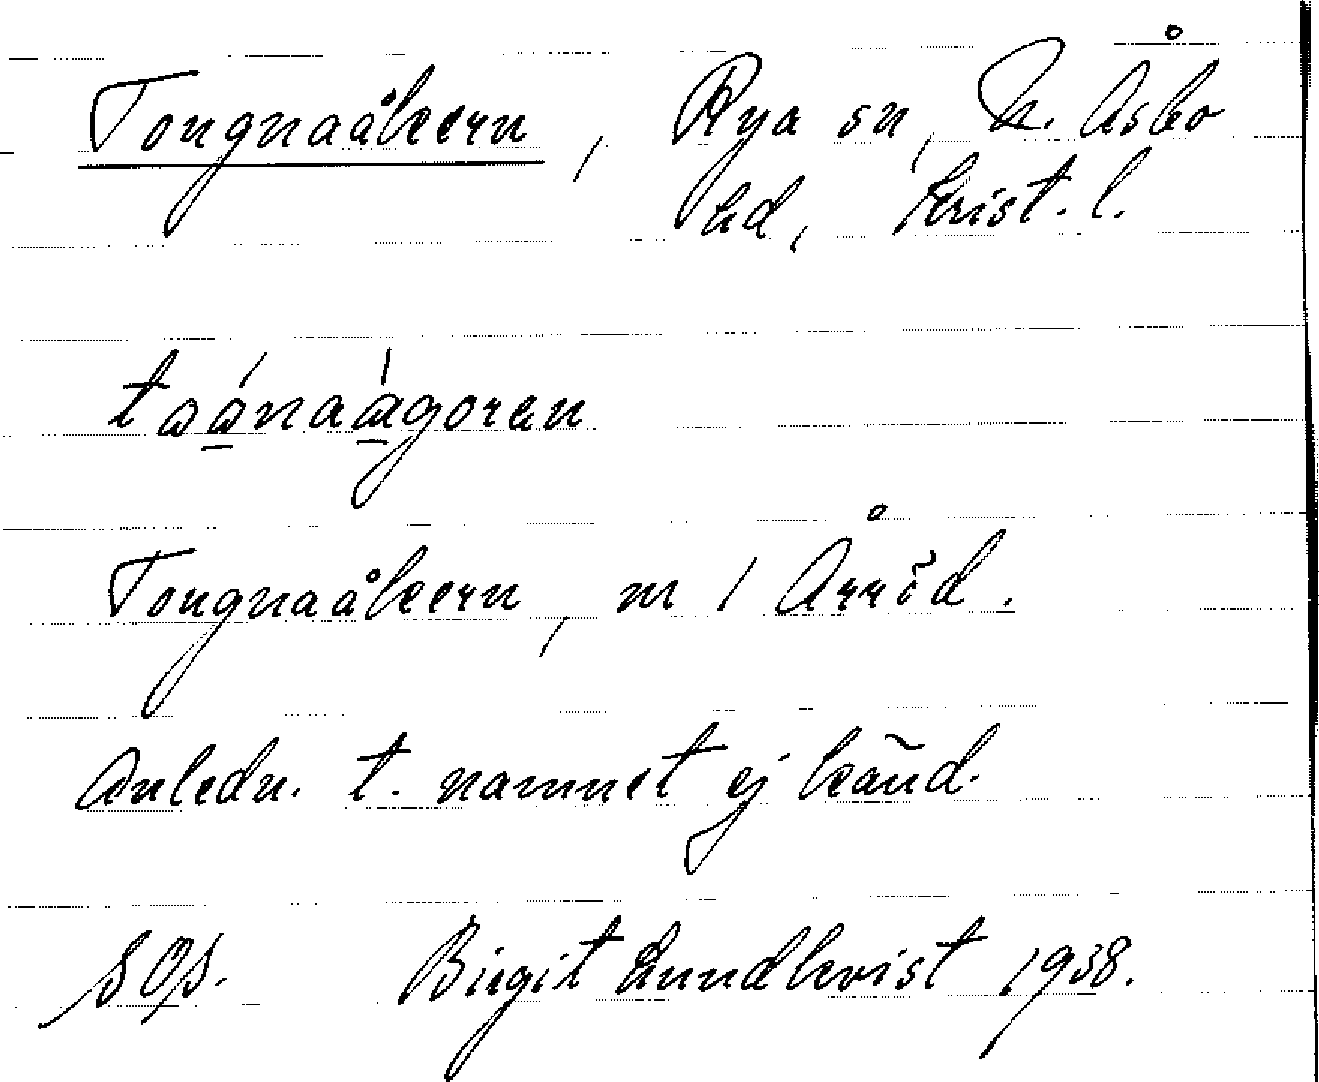 Tongnaåkern, Rya sn, N. Åsbo
hd, Krist. l.
taánaágoren
Tongnaåkern, m / Årröd.
Anledn. t. namnet ej känd.
Birgit Lundkvist 1938.